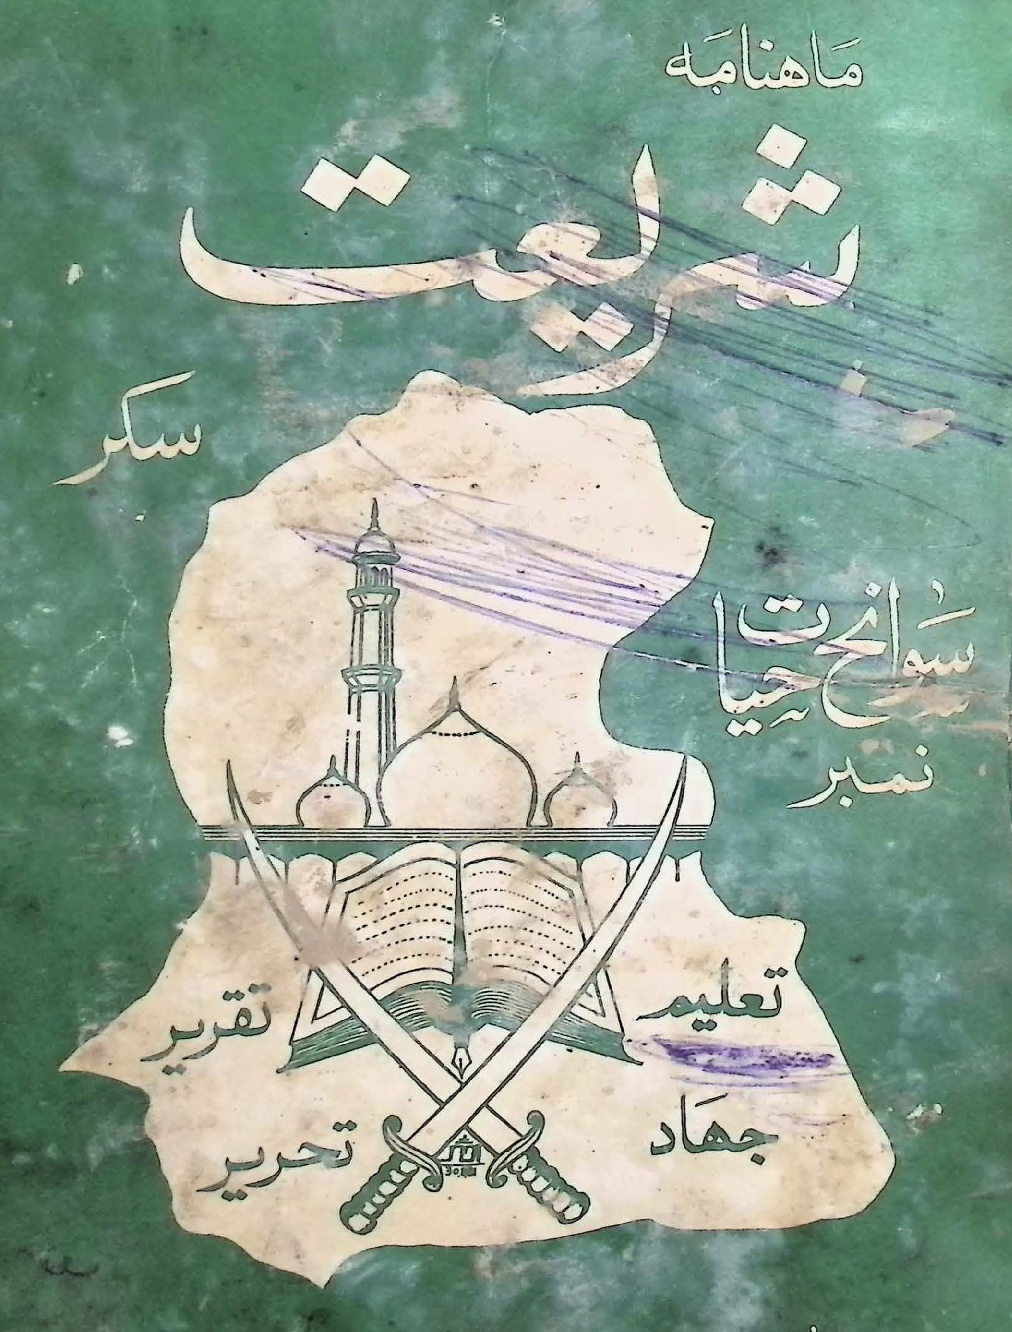 ماهنامه
شريعت
سکر
سوانح حيات
نمبر
تعليم
تقرير
جهاد
تحرير